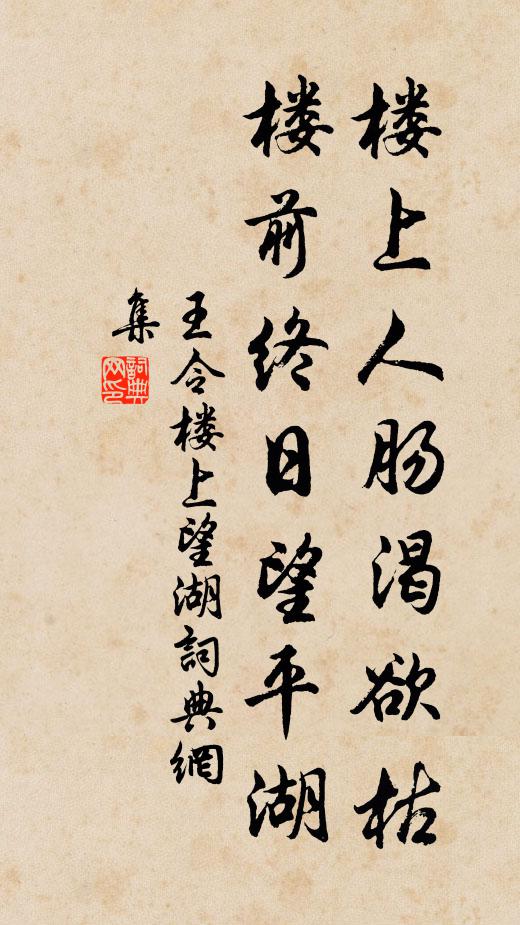 楼上人肠渴欲枯
楼前终日望平湖
王令楼上望湖詞典網
集
詞典
网印